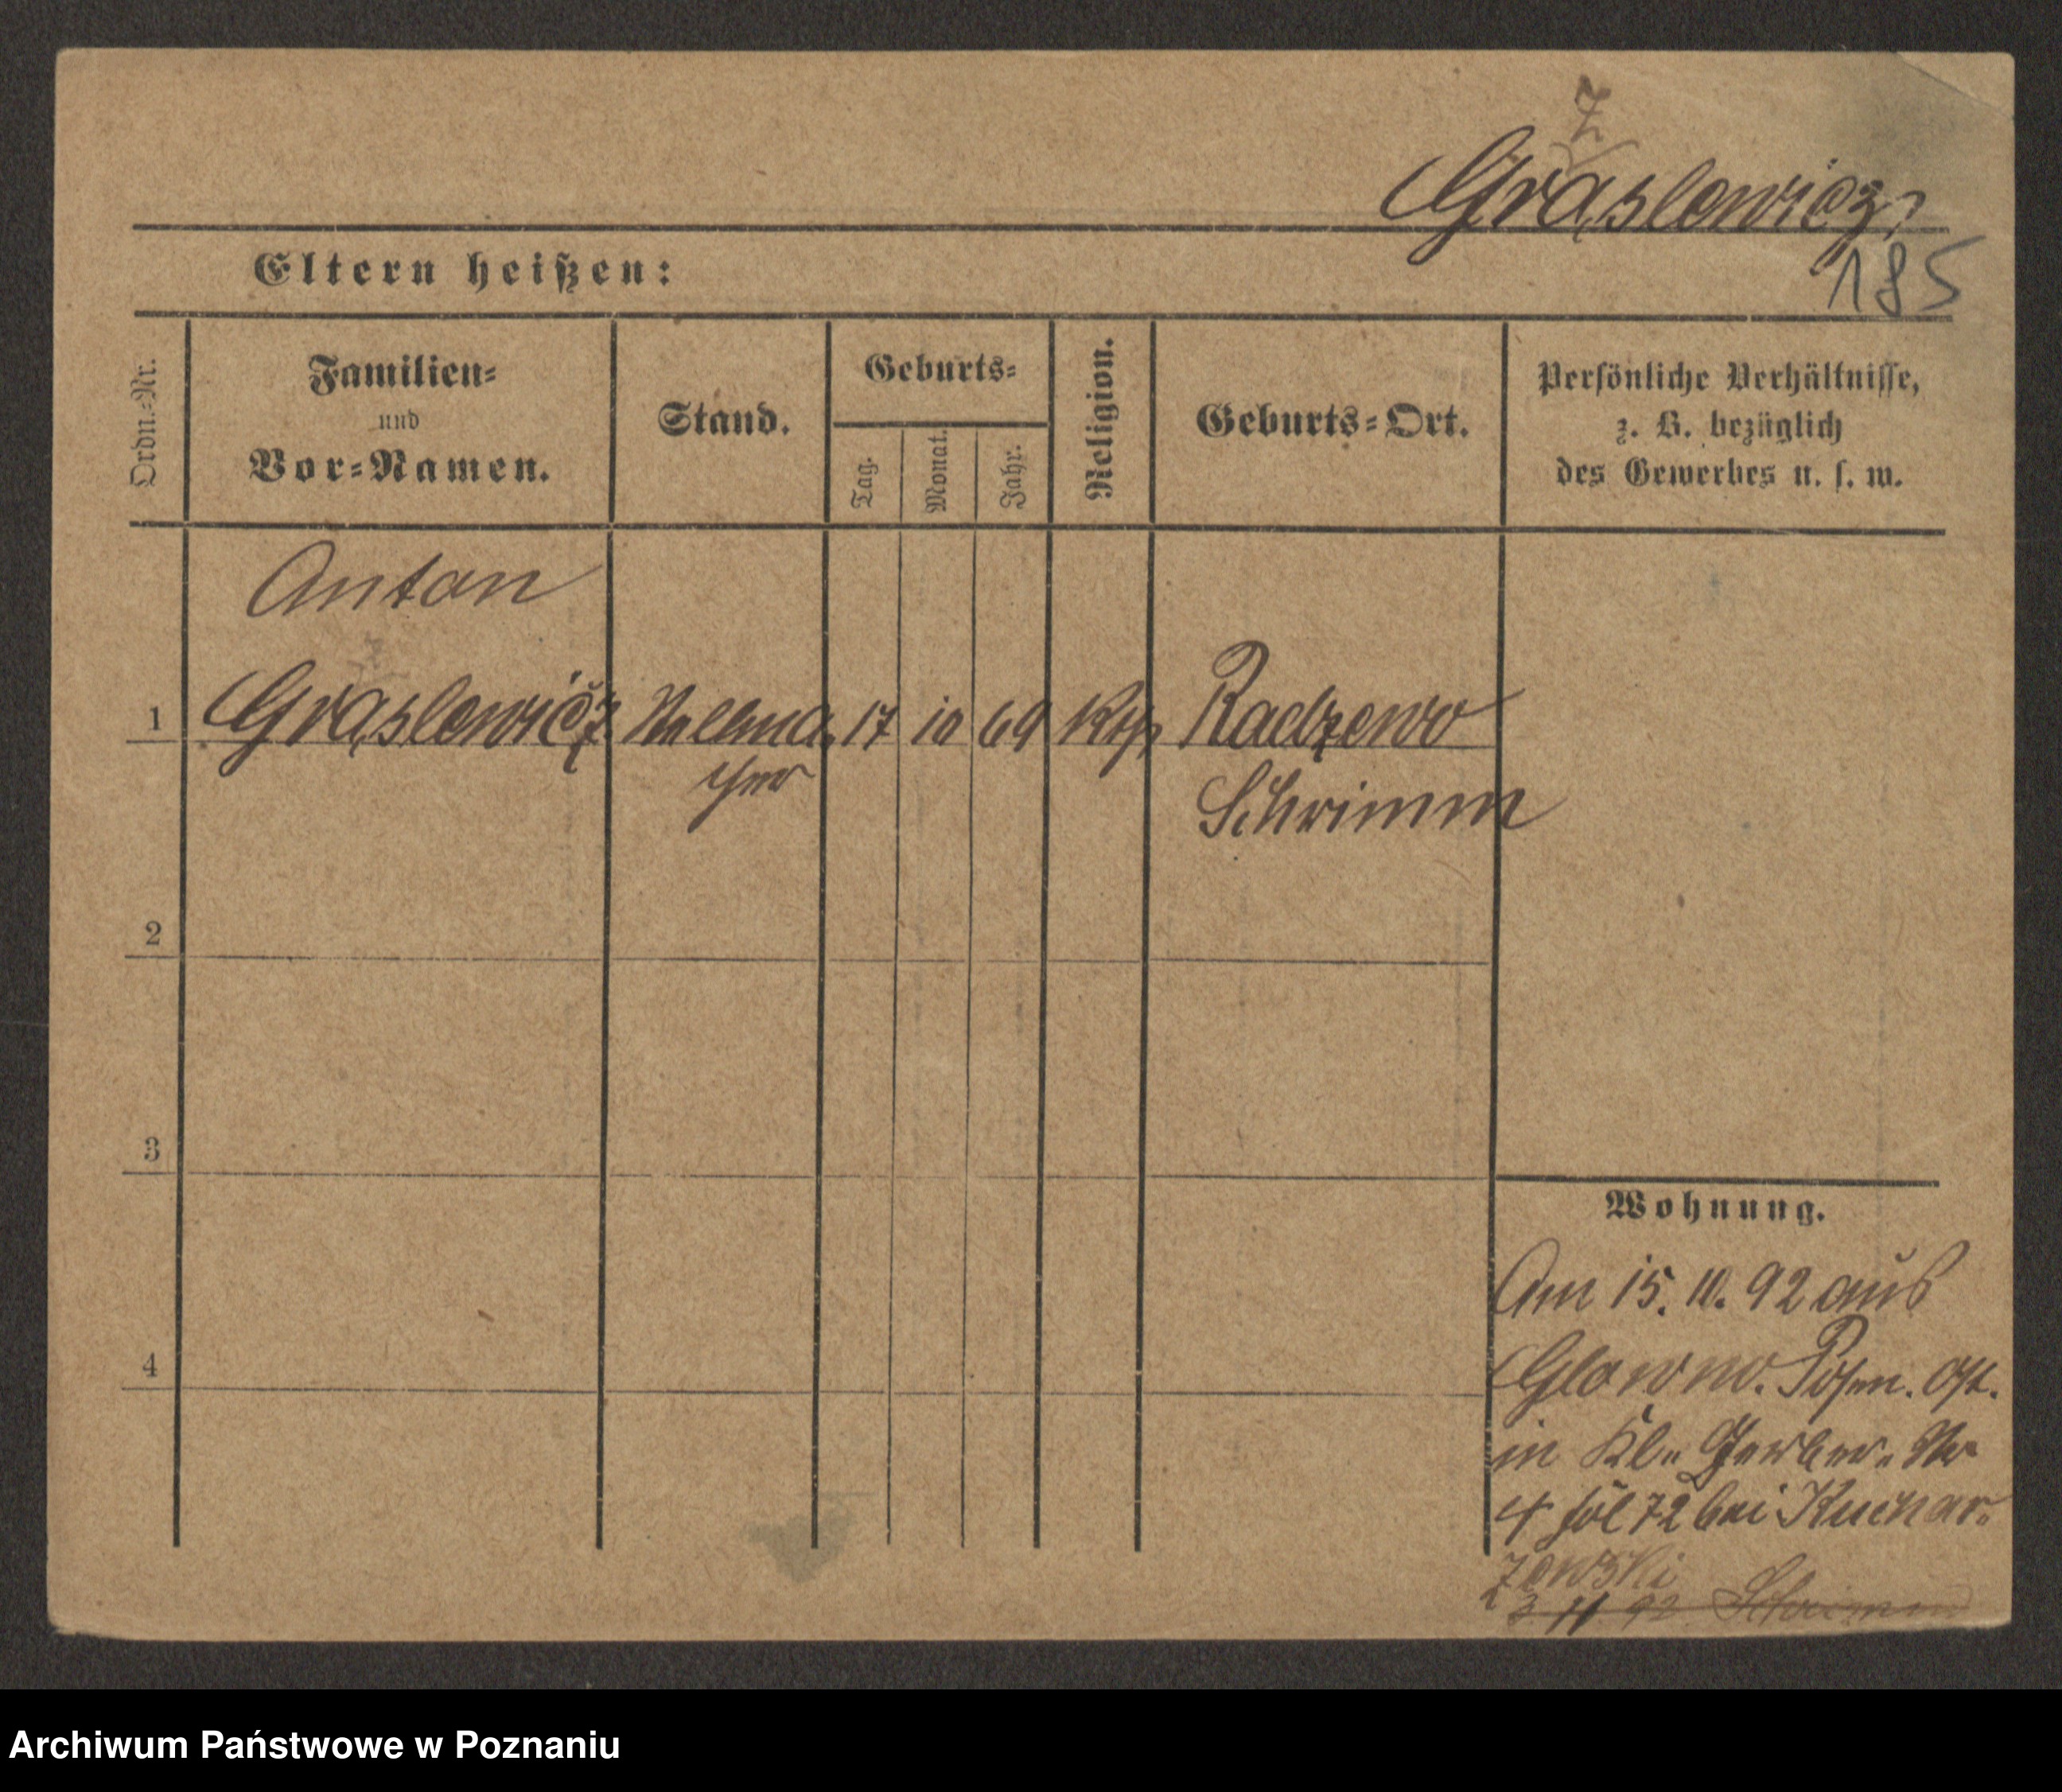 Z
Grąslewicz
185
Eltern heißen:
Ordn.-Nr.
Familien-
und
Vor-Namen.
Stand.
Geburts-
Tag.
Monat.
Jahr.
Religion.
Geburts-Ort.
Persönliche Verhältnisse,
z. B. bezüglich
des Gewerbes u. s. w.
Anton
1 Grąslewicz Stellma 17 10 69 Kth Radzewo
cher
Schrimm
2
3
4
Wohnung.
Am 15. 10. 92 aus
Glowno. Posen. Ost.
in Kl. Gerber. Str
4 fol 72 bei Kuchar-
zewski
3. 11. 92 Schrimm
Archiwum Państwowe w Poznaniu